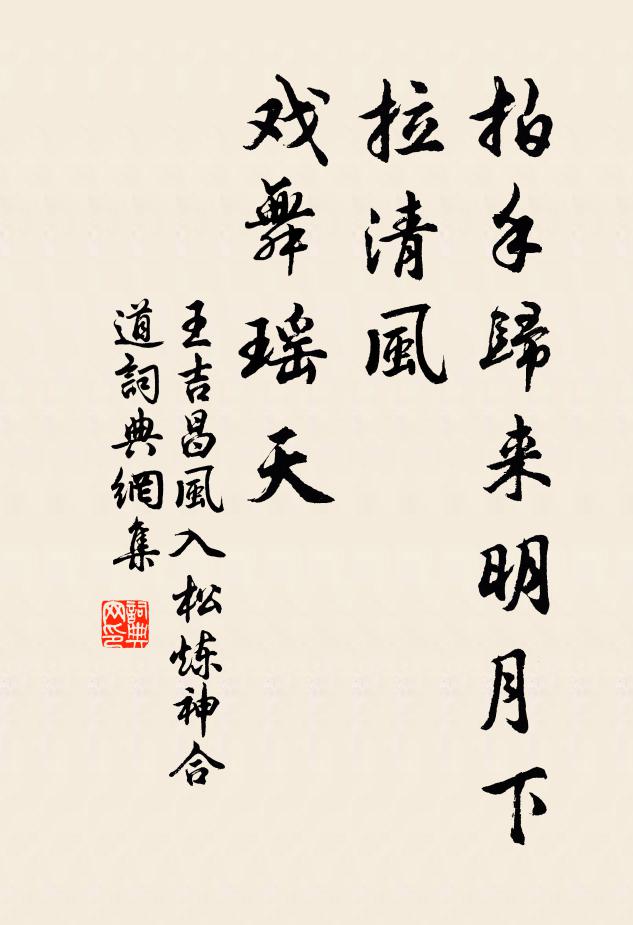 拍手歸来明月下
拉清風
戏舞瑶天
王吉昌風入松炼神合
道詞典網集
詞典
网印